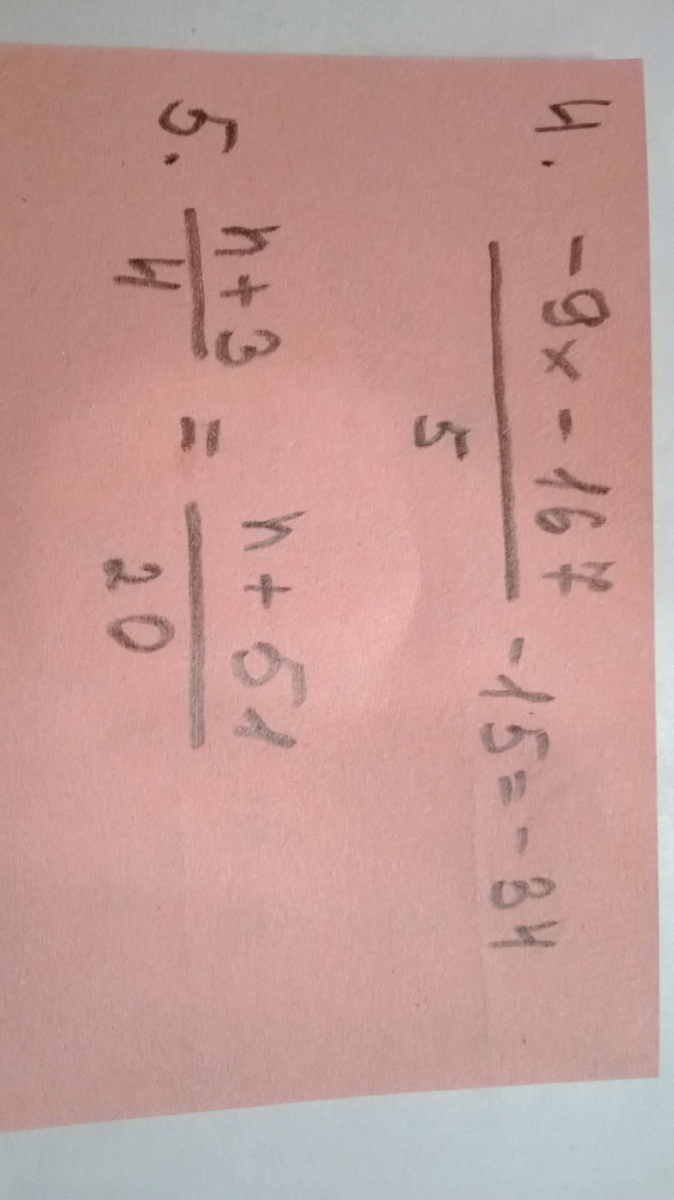 4. -9x - 167
5
-15 = -34
5. n+3
4
=
n + 51
20